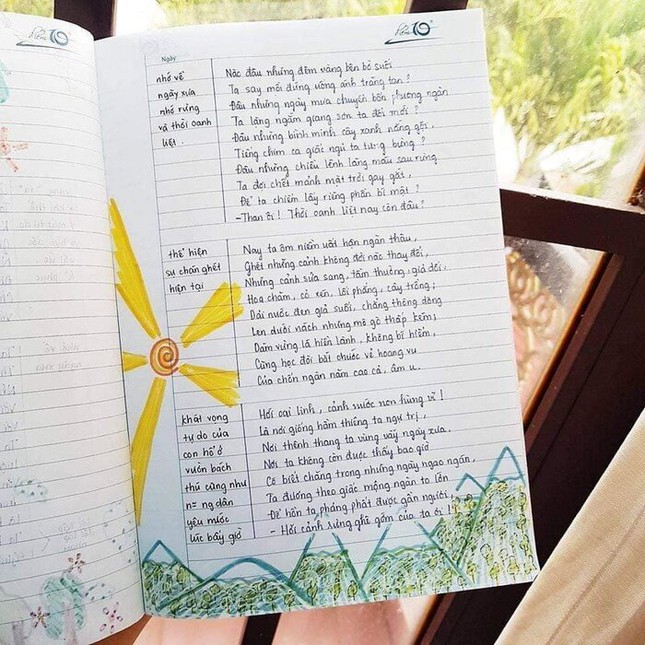 Ngày
nhớ về
ngày xưa
nhớ rừng
và thời oanh
liệt.
Nào đâu những đêm vàng bên bờ suối
Ta say mồi đứng uống ánh trăng tan?
Đâu những ngày mưa chuyển bốn phương ngàn
Ta lặng ngắm giang sơn ta đổi mới?
Đâu những bình minh cây xanh nắng gội,
Tiếng chim ca giấc ngủ ta tưng bừng?
Đâu những chiều lênh láng máu sau rừng
Ta đợi chết mảnh mặt trời gay gắt,
Để ta chiếm lấy riêng phần bí mật?
- Than ôi! Thời oanh liệt nay còn đâu?
thể hiện
sự chán ghét
hiện tại
Nay ta ôm niềm uất hận ngàn thâu,
Ghét những cảnh không đời nào thay đổi,
Những cảnh sửa sang, tầm thường, giả dối:
Hoa chăm, cỏ xén, lối phẳng, cây trồng;
Dải nước đen giả suối, chẳng thông dòng
Len dưới nách những mô gò thấp kém;
Dăm vừng lá hiền lành, không bí hiểm,
Cũng học đòi bắt chước vẻ hoang vu
Của chốn ngàn năm cao cả, âm u.
khát vọng
tự do của
con hổ ở
vườn bách
thú cũng như
n= ng dân
yêu nước
lúc bấy giờ
Hỡi oai linh, cảnh nước non hùng vĩ!
Là nơi giống hầm thiêng ta ngự trị,
Nơi thênh thang ta vùng vẫy ngày xưa.
Nơi ta không còn được thấy bao giờ
Có biết chăng trong những ngày ngao ngán,
Ta đương theo giấc mộng ngàn to lớn
Để hồn ta phảng phất được gần ngươi
- Hỡi cảnh rừng ghê gớm của ta ơi!